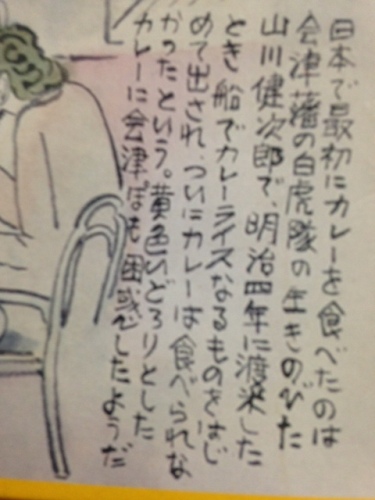 日本で最初にカレーを食べたのは
会津藩の白虎隊の生きのびた
山川健次郎で、明治四年に渡米した
とき船でカレーライスなるものをはじ
めて出され、ついにカレーは食べられな
かったという。黄色いどろりとした
カレーに会津っぽも困惑したようだ